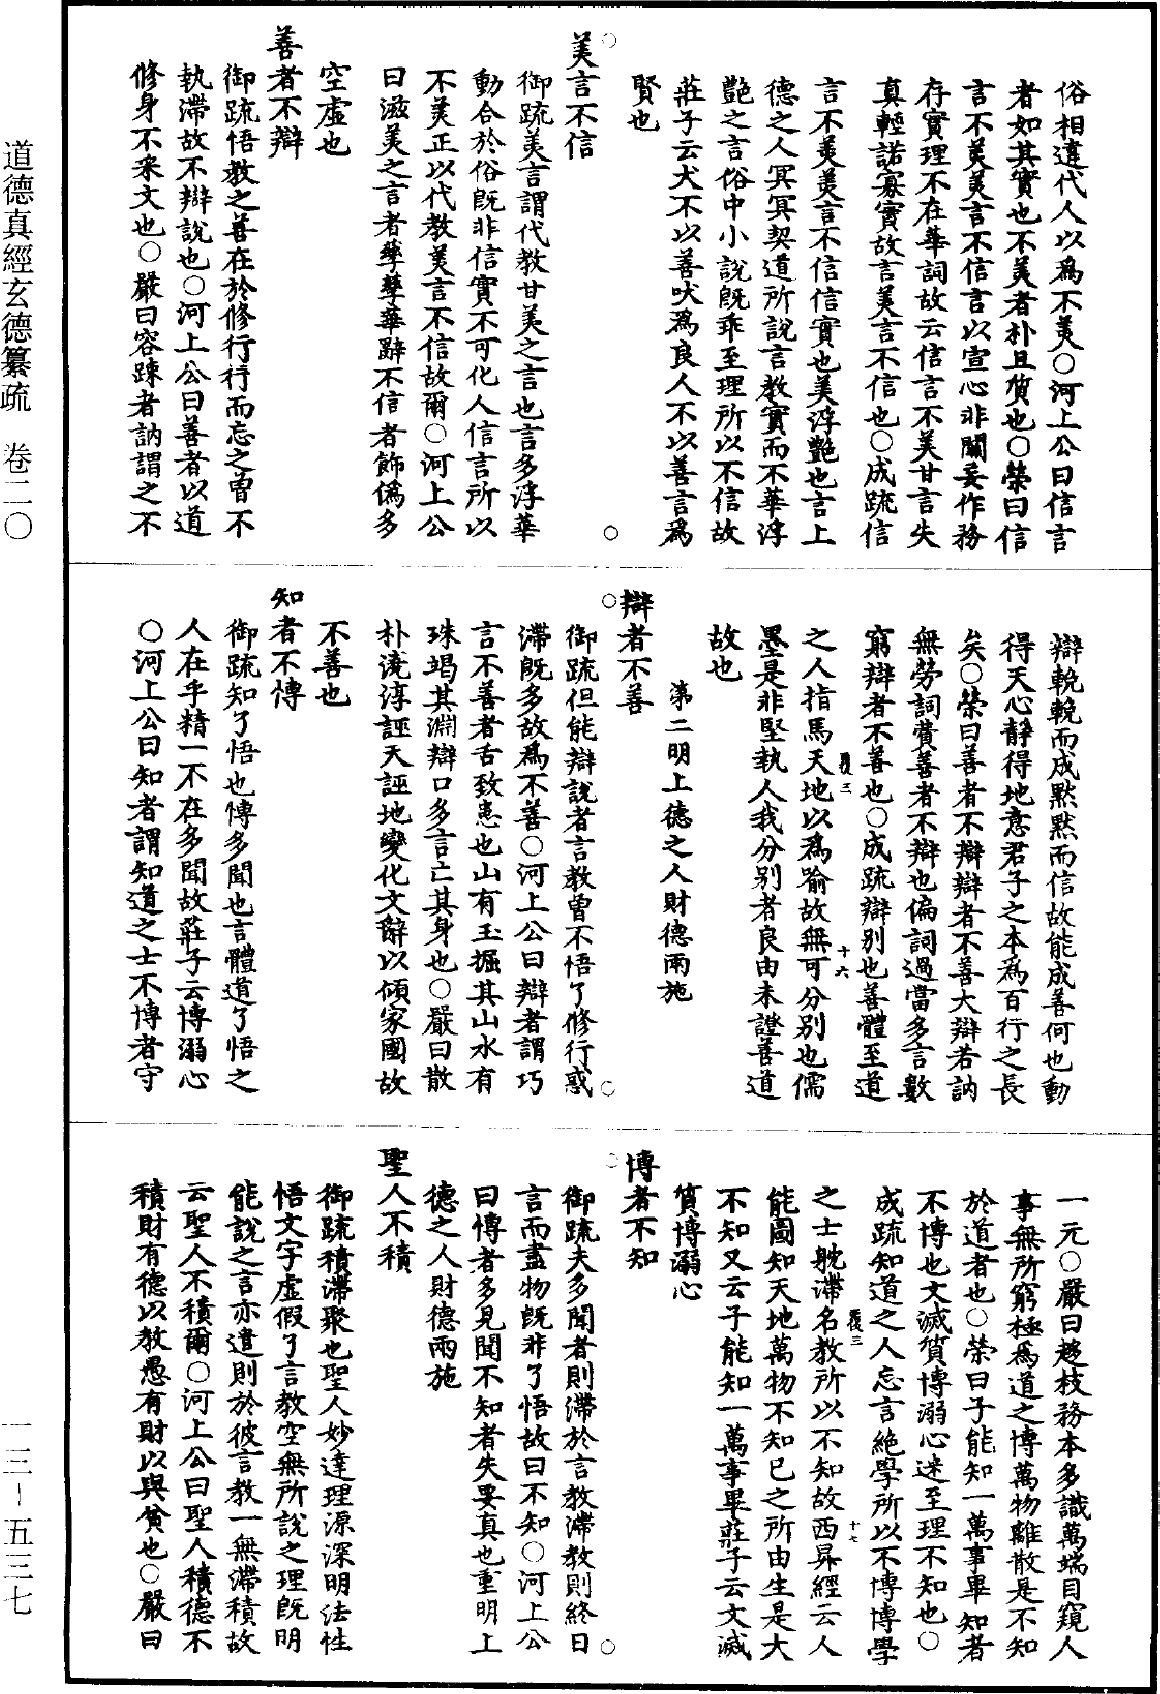 俗相違代人以爲不美○河上公曰信言
者如其實也不美者朴且質也○榮曰信
言不美美言不信言以宣心非關妄作務
存實理不在華詞故云信言不美甘言失
真輕諾寡實故言美言不信也○成疏信
言不美美言不信信實也美浮艷也言上
德之人冥冥契道所說言教實而不華浮
艷之言俗中小說旣乖至理所以不信故
莊子云犬不以善吠爲良人不以善言爲
賢也
美言不信
御疏美言謂代教甘美之言也言多浮華
動合於俗旣非信實不可化人信言所以
不美正以代教美言不信故爾○河上公
曰滋美之言者孳孳華辭不信者飾僞多
空虛也
善者不辯
御疏悟教之善在於修行行而忘之曾不
執滯故不辯說也○河上公曰善者以道
修身不釆文也○嚴曰容踈者訥謂之不
辯輓輓而成默默而信故能成善何也動
得天心靜得地意君子之本爲百行之長
矣○榮曰善者不辯辯者不善大辯若訥
無勞詞費善者不辯也偏詞過當多言數
窮辯者不善也○成疏辯別也善體至道
之人指馬天地以爲喻故無可分別也儒
墨是非堅執人我分別者良由未證善道
故也
第二明上德之人財德兩施
辯者不善
御疏但能辯說者言教曾不悟了修行惑
滯旣多故爲不善○河上公曰辯者謂巧
言不善者舌致患也山有玉掘其山水有
珠竭其淵辯口多言亡其身也○嚴曰散
朴澆淳誣天誣地變化文辭以傾家國故
不善也
知者不博
御疏知了悟也博多聞也言體道了悟之
人在乎精一不在多聞故莊子云博溺心
○河上公曰知者謂知道之士不博者守
一元○嚴曰趍枝務本多識萬端目窺人
事無所窮極爲道之博萬物離散是不知
於道者也○榮曰子能知一萬事畢知者
不博也文滅質博溺心迷至理不知也○
成疏知道之人忘言絕學所以不博博學
之士躭滯名教所以不知故西昇經云人
能圖知天地萬物不知已之所由生是大
不知又云子能知一萬事畢莊子云文滅
質博溺心
博者不知
御疏夫多聞者則滯於言教滯教則終日
言而盡物旣非了悟故曰不知○河上公
曰博者多見聞不知者失要真也重明上
德之人財德兩施
聖人不積
御疏積滯聚也聖人妙達理源深明法性
悟文字虛假了言教空無所說之理旣明
能說之言亦遣則於彼言教一無滯積故
云聖人不積爾○河上公曰聖人積德不
積財有德以教愚有財以與貧也○嚴曰
覆三
十六
覆三
十七
道德真經玄德纂疏 卷二〇
一三-五三七